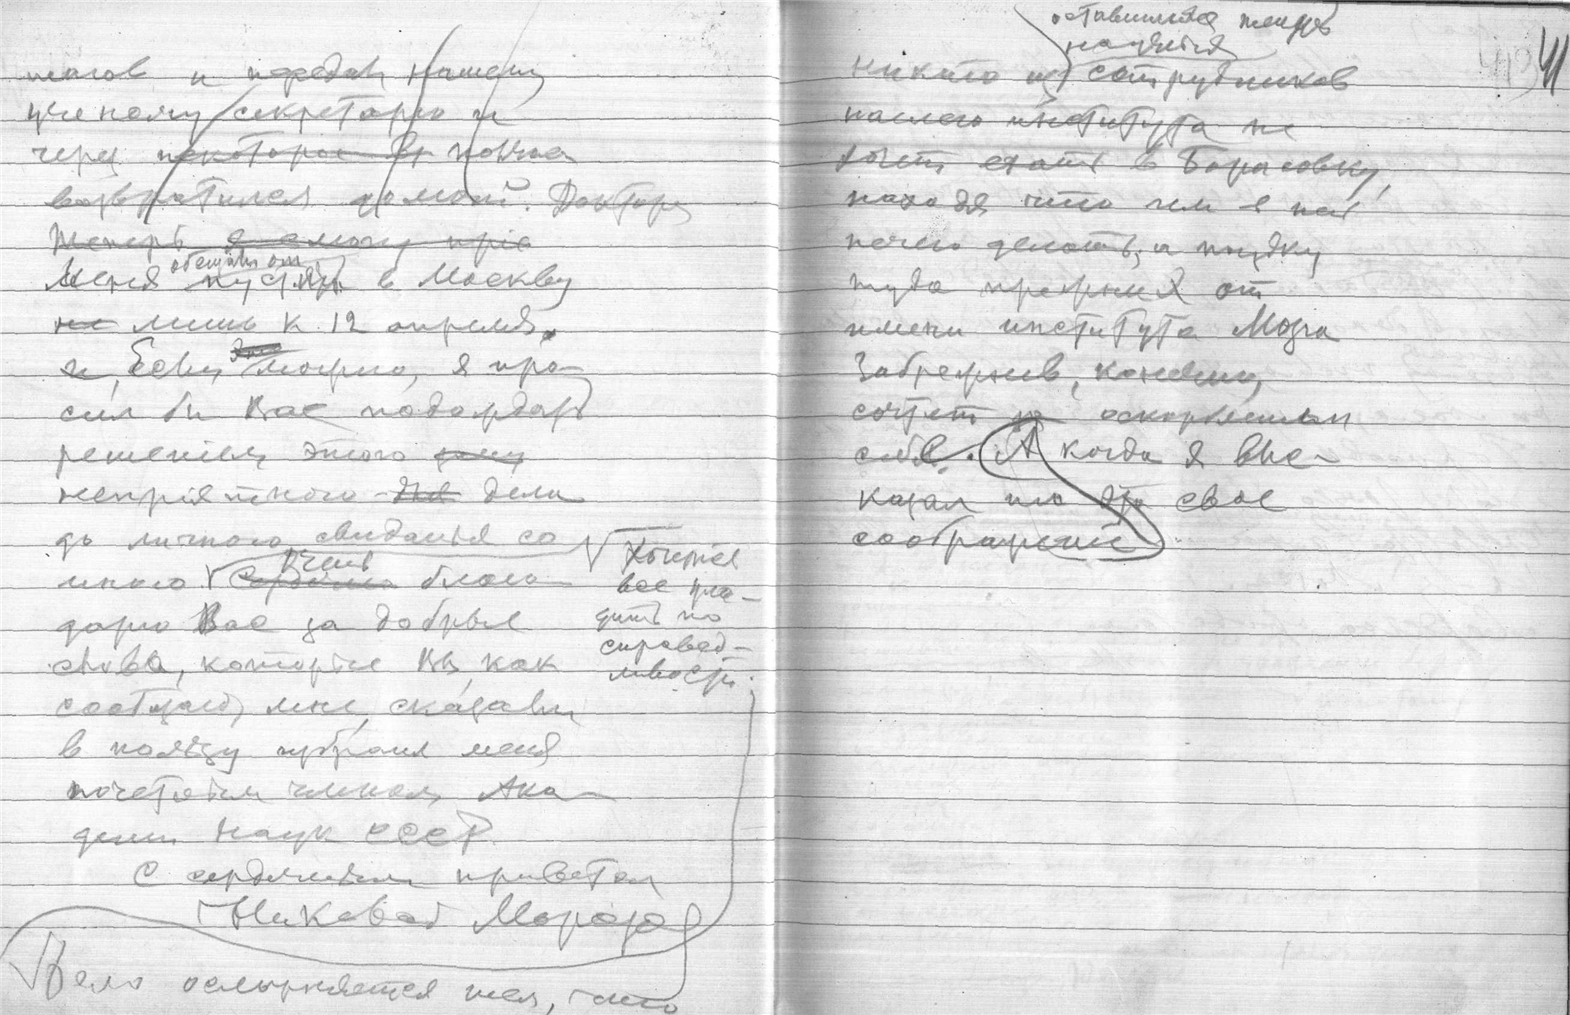 и передал нашему
ученому секретарю и
через некоторое вр
возвратился домой. Доктора
теперь
меня обещают отпустить в Москву
не лишь к 12 апреля.
и, Если это можно, я про-
сил бы Вас подождать
решением этого
неприятного дела
до личного свиданья со
мною Сердечно очень благо-
дарю Вас за добрые
слова, которые Вы, как
сообщают мне, сказали
в пользу избрания меня
почетным членом Ака-
демии Наук СССР.
С сердечным приветом
Николай Морозов
Хочется
все ула-
дить по
справед-
ливости.
Дело осложняется тем, что
оставшихся теперь
никто из сотрудников
нашего института не
хочет ехать в Борисовку,
находя что им в ней
нечего делать, а поездку
туда прежних от
имени института Мозга
Забрежнев, конечно,
сочтет оскорблением
себе. А когда я выс-
казал это свое
соображение
41